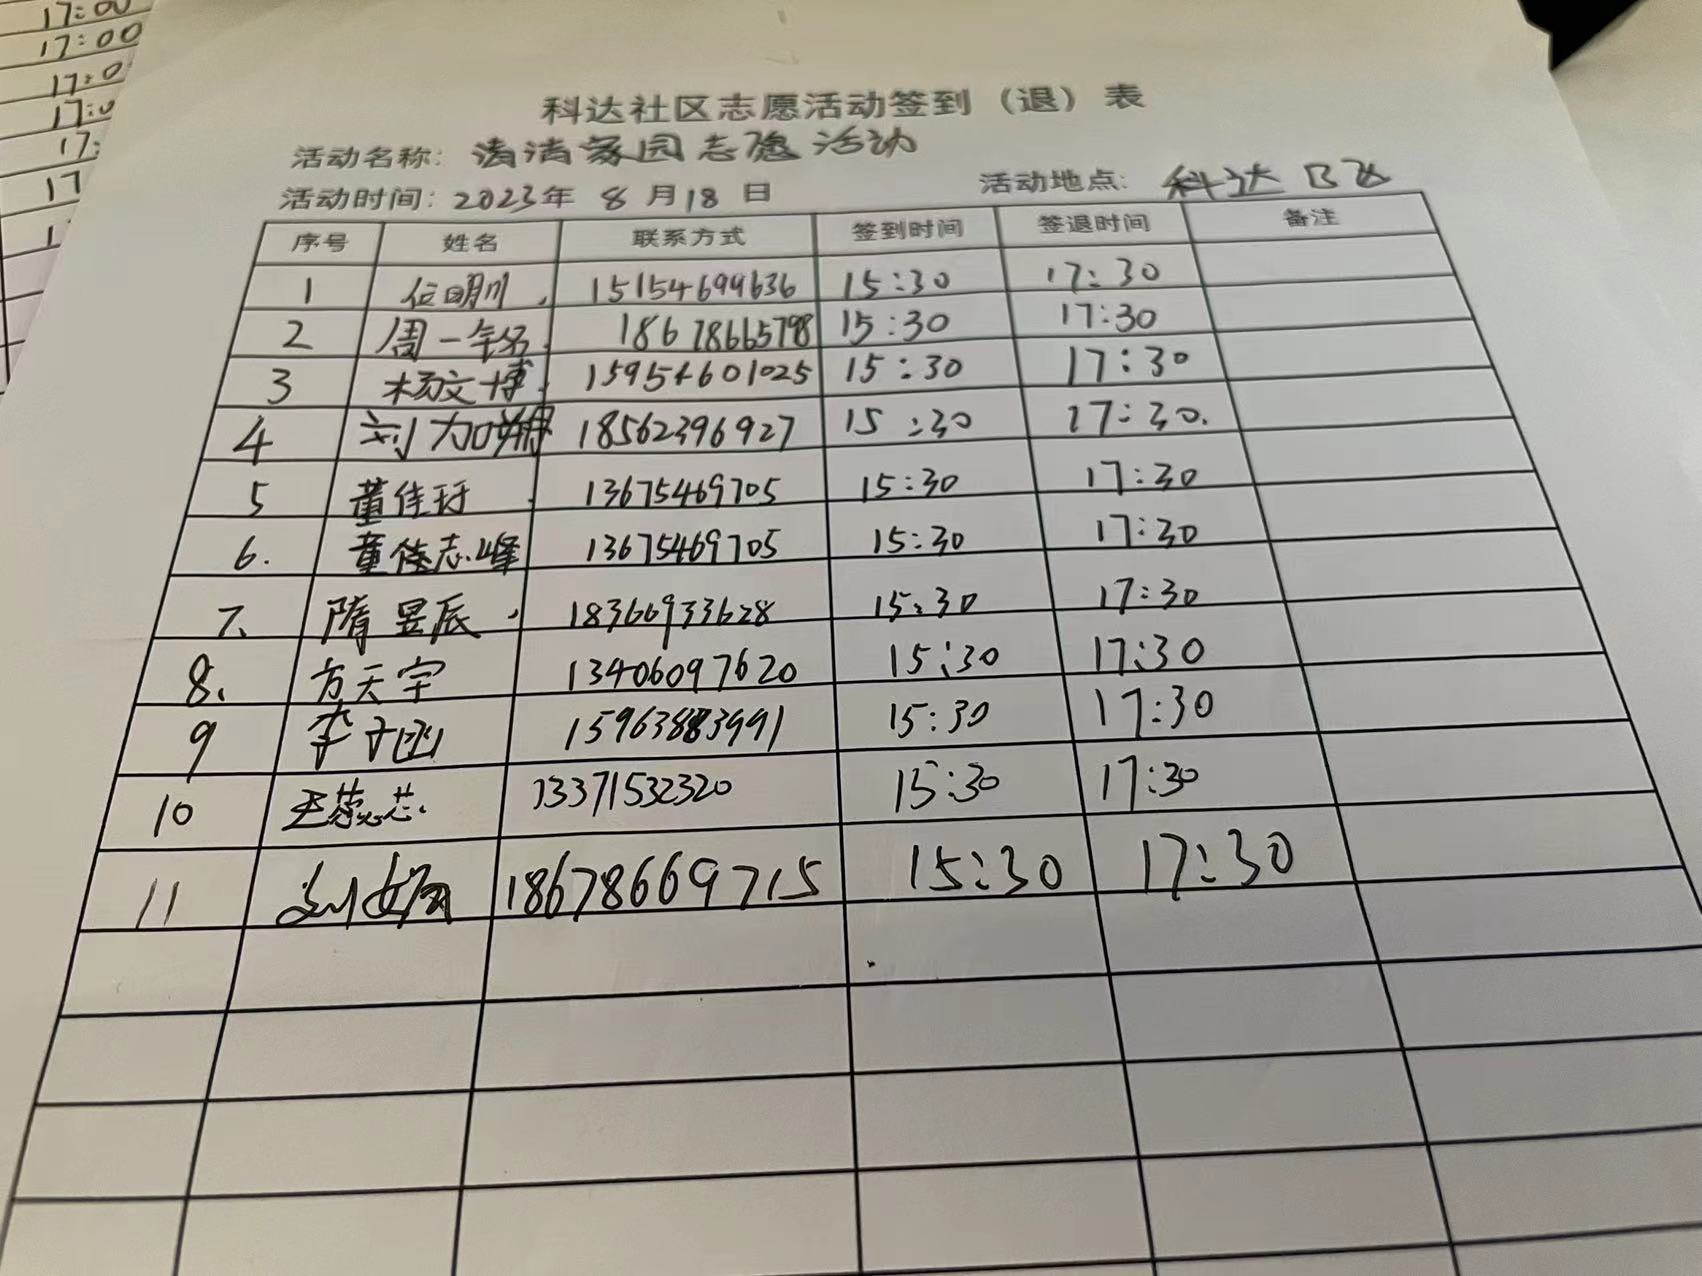 17:00
17:00
17:0
17:0
17:
17
1
科达社区志愿活动签到（退）表
活动名称: 清洁家园志愿活动
活动时间: 2023年 8 月 18 日 活动地点: 科达
序号 姓名 联系方式 签到时间 签退时间 备注
1 位明川 15154694636 15:30 17:30
2 周一 18678665798 15:30 17:30
3 杨文博 15954601025 15:30 17:30
4 刘加 18562396927 15:30 17:30.
5 董佳 13675469705 15:30 17:30
6. 董 志峰 13675469705 15:30 17:30
7、 隋昱辰 18366933628 15:30 17:30
8、 方天宇 13406097620 15:30 17:30
9 李子函 15963883991 15:30 17:30
10 王蕊芯 13371532320 15:30 17:30
11 刘 18678669715 15:30 17:30